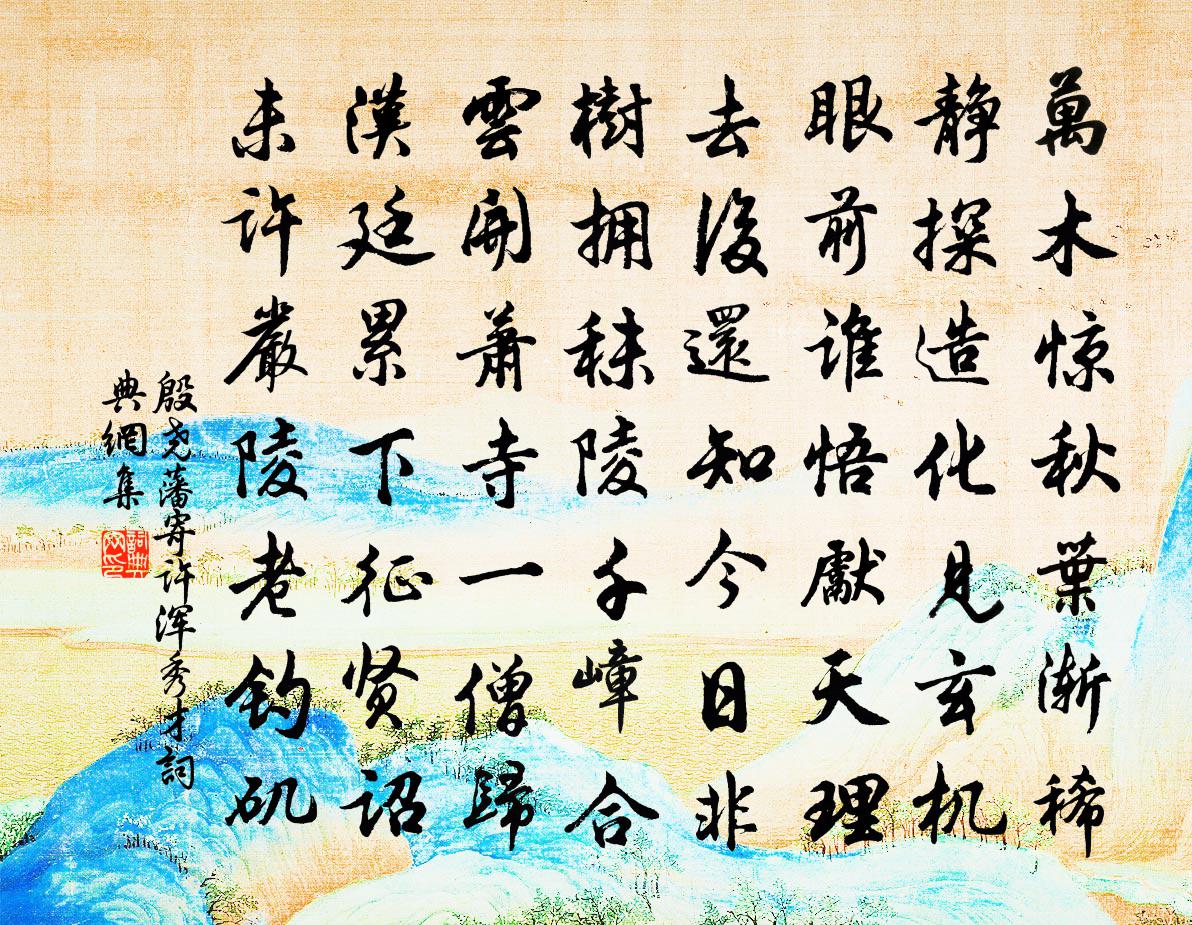 萬木惊秋葉渐稀
静探造化見玄机
眼前谁悟獻天理
去後還知今日非
樹拥秣陵千嶂合
雲開萧寺一僧歸
漢廷累下征贤诏
未许嚴陵老钓矶
殷尧藩寄许浑秀才詞
典網集
詞典网印